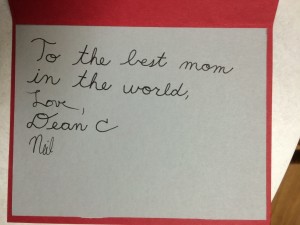 To the best mom
in the world,
Love,
Dean C
Neil